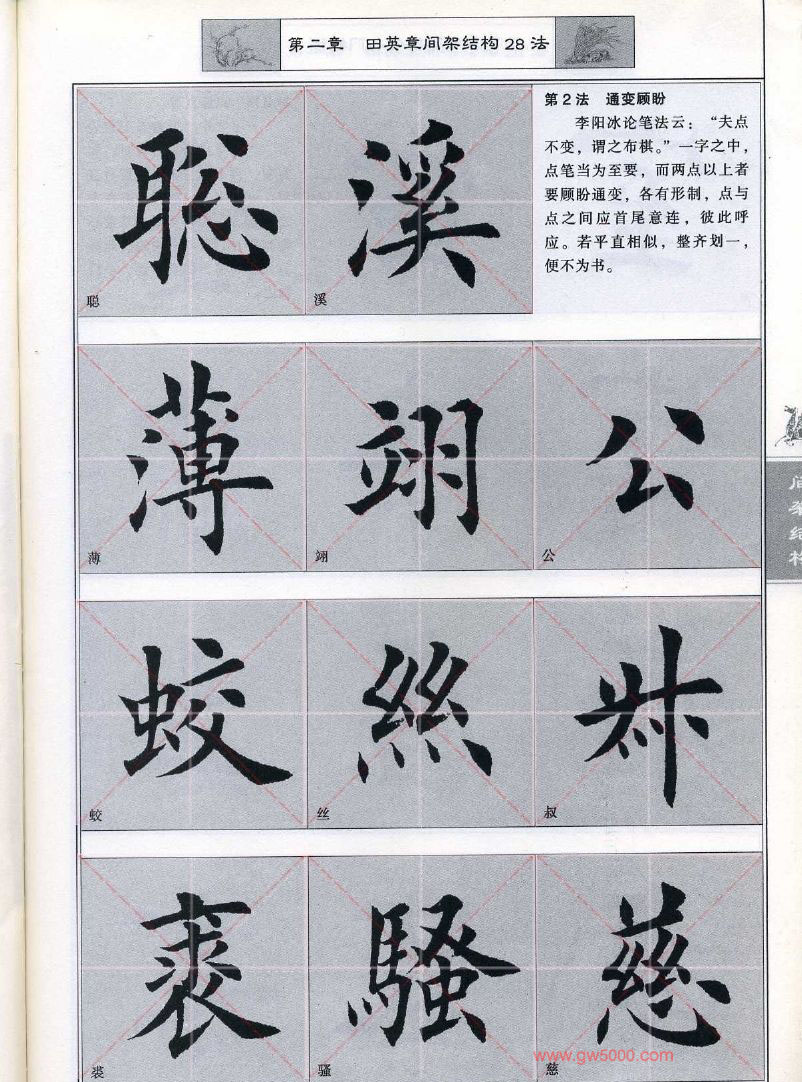 第二章 田英章间架结构28法
聡 溪
聪 溪
第2法 通变顾盼
李阳冰论笔法云：“夫点
不变，谓之布棋。”一字之中，
点笔当为至要，而两点以上者
要顾盼通变，各有形制，点与
点之间应首尾意连，彼此呼
应。若平直相似，整齐划一，
便不为书。
薄 翊 公
薄 翊 公
间架结构
蛟 絲
蛟 丝 叔
裘 騷 慈
裘 骚 慈
www.gw5000.com